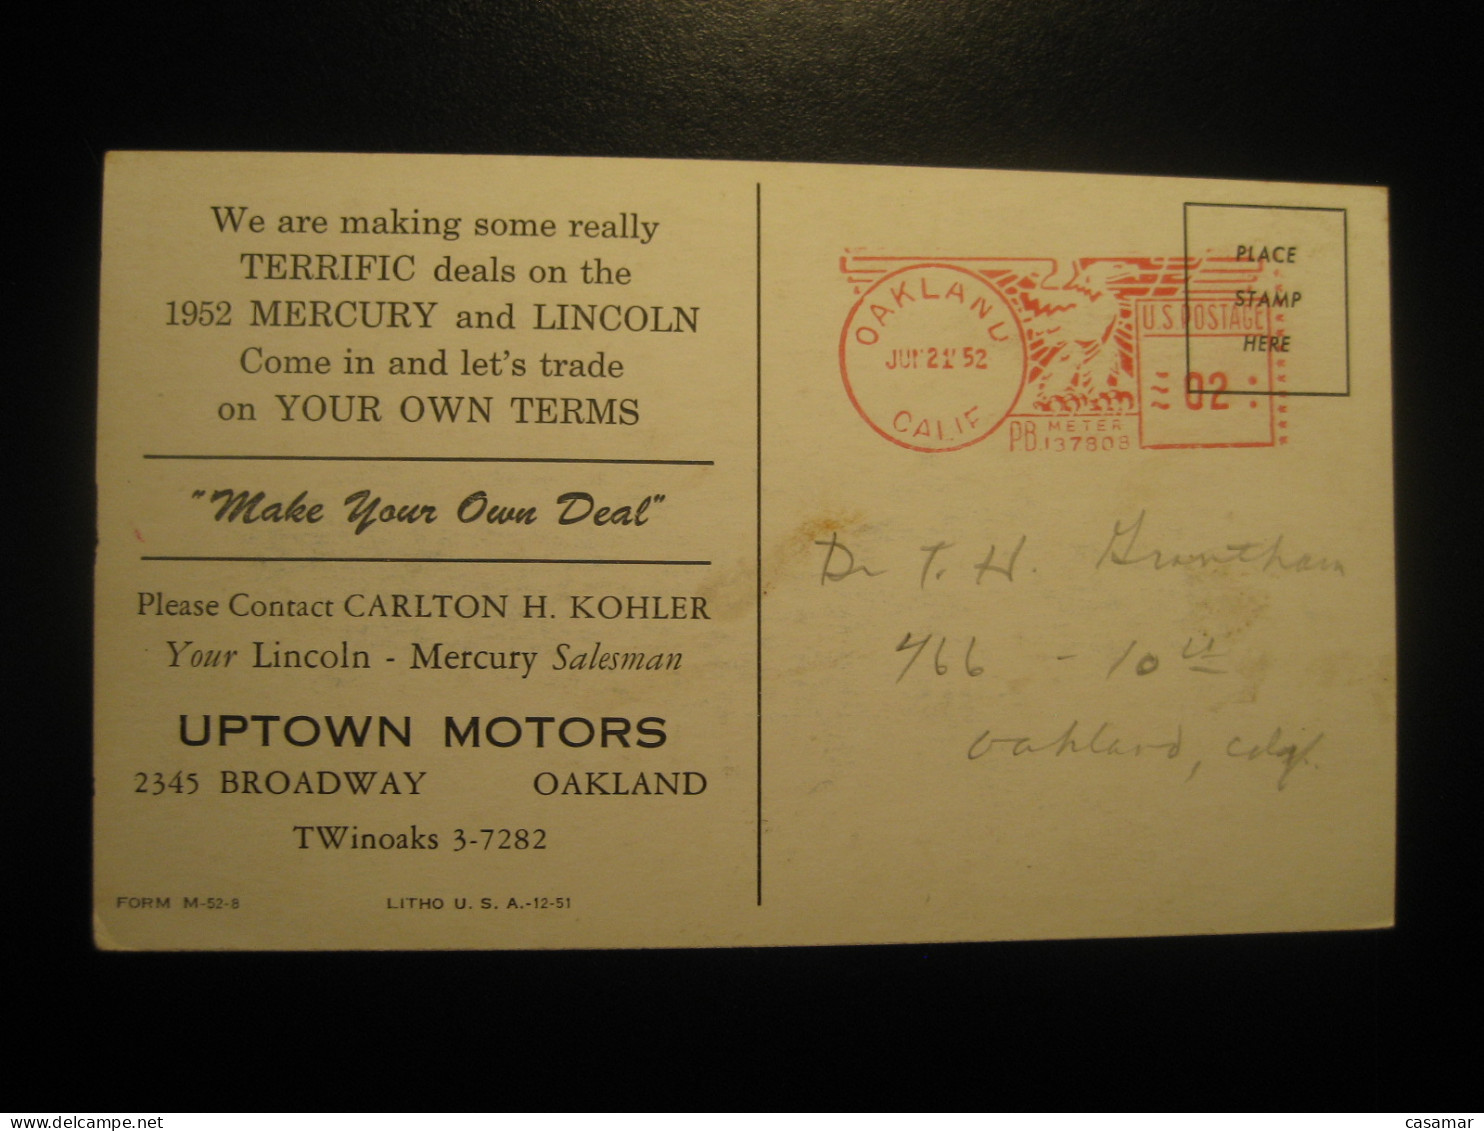 We are making some really
TERRIFIC deals on the
1952 MERCURY and LINCOLN
Come in and let's trade
on YOUR OWN TERMS
"Make Your Own Deal"
Please Contact CARLTON H. KOHLER
Your Lincoln - Mercury Salesman
UPTOWN MOTORS
2345 BROADWAY OAKLAND
TWinoaks 3-7282
FORM M-52-8 LITHO U. S. A.-12-51
OAKLAND
JUN 21 52
CALIF
PB. METER
137808
U.S. POSTAGE
02
PLACE
STAMP
HERE
Dr T. H. Grantham
466 - 10th
Oakland, Calif.
casamar
delcampe.net